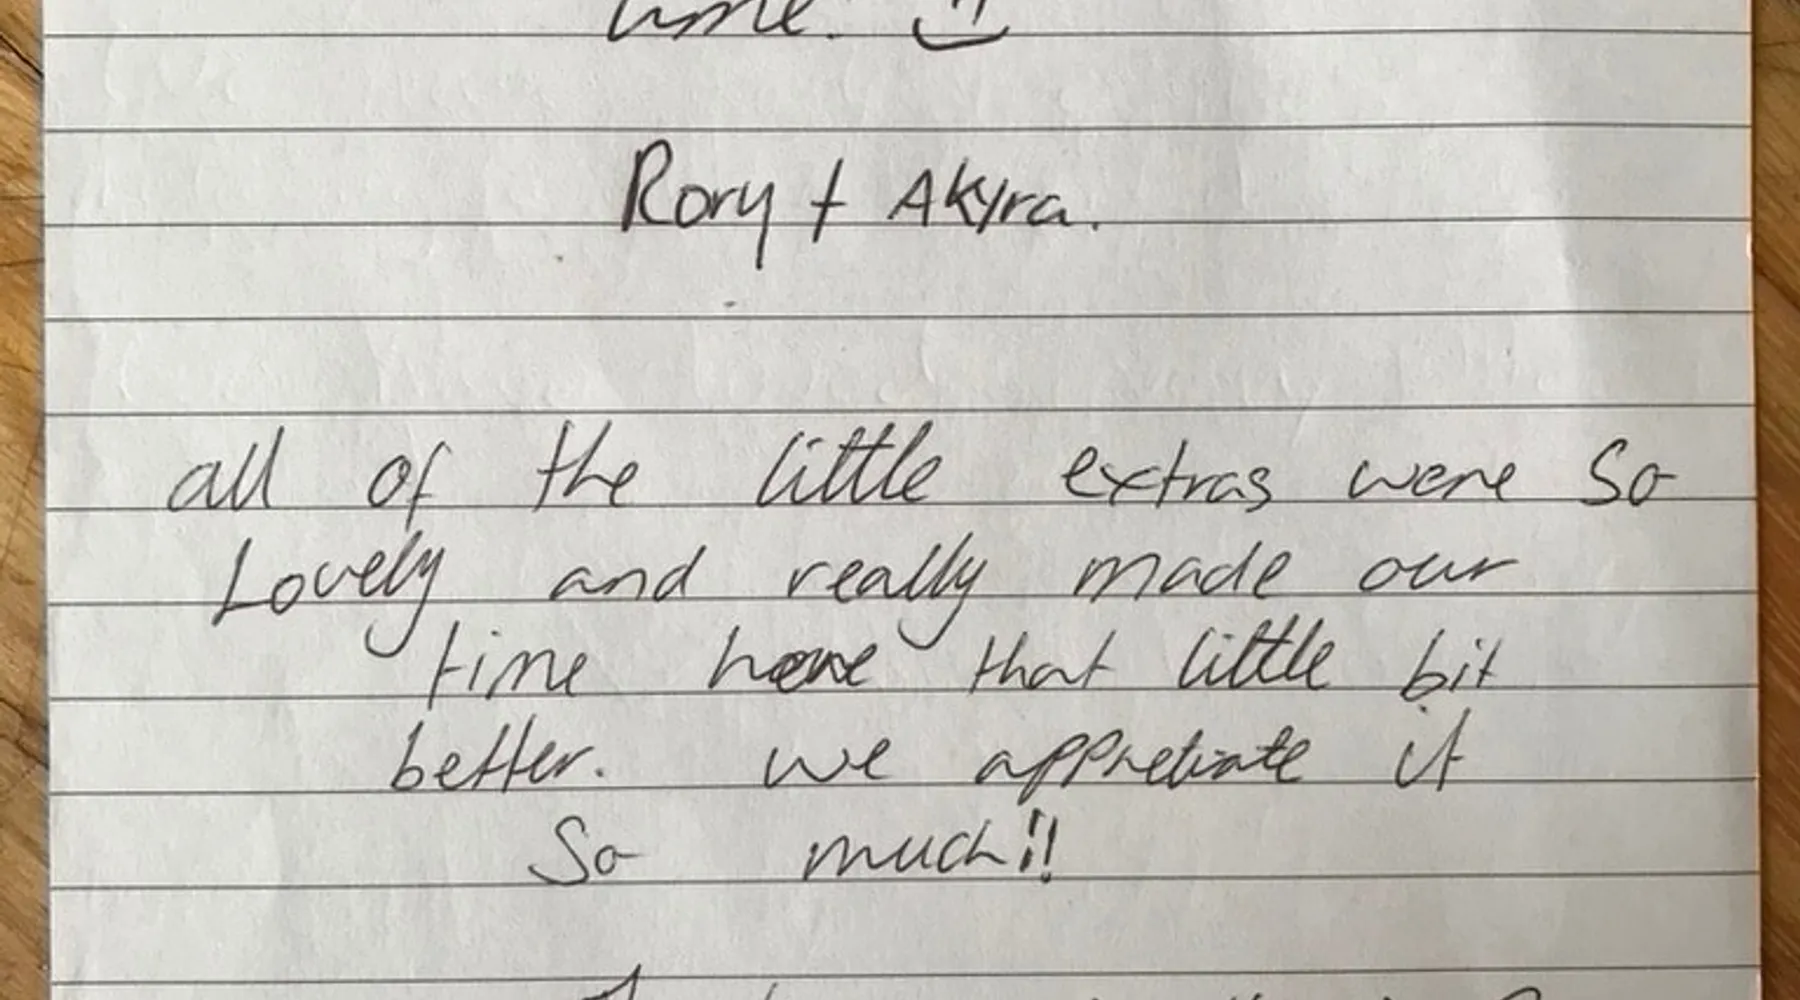 time. :)
Rory + Akyra.
all of the little extras were so
Lovely and really made our
time here that little bit
better. we appreciate it
So much!!